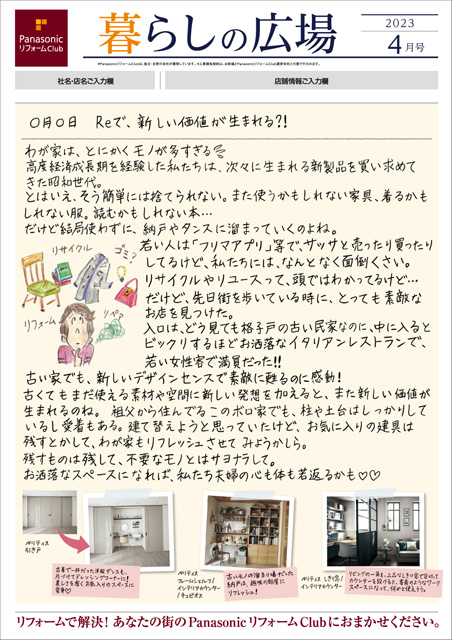 Panasonic
リフォームClub
暮らしの広場
2023
4月号
社名・店名ご入力欄
店舗情報ご入力欄
〇月〇日 Reで、新しい価値が生まれる?!
わが家は、とにかくモノが多すぎる
高度経済成長期を経験した私たちは、次々に生まれる新製品を買い求めて
きた昭和世代。
とはいえ、そう簡単には捨てられない。また使うかもしれない家具、着るかも
しれない服。読むかもしれない本…
だけど結局使わずに、納戸やタンスに溜まっていくのよね。
若い人は「フリマアプリ」等で、ササッと売ったり買ったり
してるけど、私たちには、なんとなく面倒くさい。
リサイクルやリユースって、頭ではわかってるけど…
だけど、先日街を歩いている時に、とっても素敵な
お店を見つけた。
入口は、どう見ても格子戸の古い民家なのに、中に入ると
ビックリするほどお洒落なイタリアンレストランで、
若い女性客で満員だった!!
リサイクル
ゴミ?
リフォーム
リペア
古い家でも、新しいデザインセンスで素敵に甦るのに感動!
古くてもまだ使える素材や空間に新しい発想を加えると、また新しい価値が
生まれるのね。 祖父から住んでるこのボロ家でも、柱や土台はしっかりして
いるし愛着もある。建て替えようと思っていたけど、お気に入りの建具は
残すとかして、わが家もリフレッシュさせてみようかしら。
残すものは残して、不要なモノとはサヨナラして。
お洒落なスペースになれば、私たち夫婦の心も体も若返るかも♡♡
ベリティス
引き戸
ベリティス
フレームシェルフ/
インテリアカウンター
/キュビオス
古いモノの溜まり場だった
納戸は、趣味の部屋に
リフレッシュ!
ベリティス しきり窓/
インテリアカウンター
リフォームで解決! あなたの街のPanasonicリフォームClubにおまかせください。